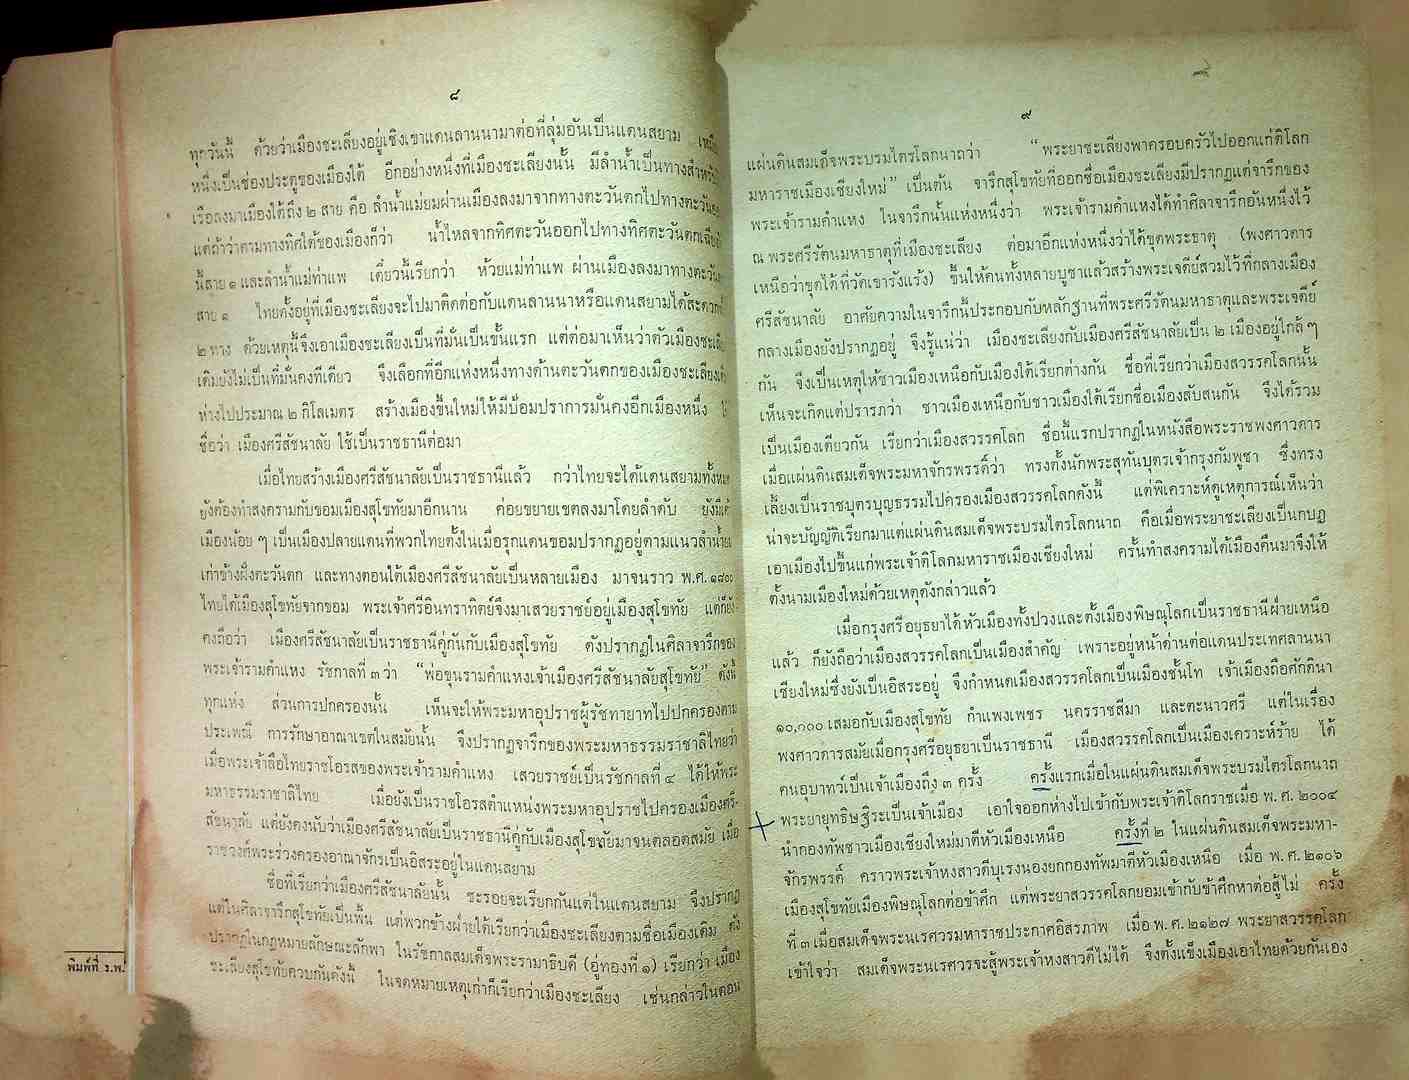 ๘
ทุกวันนี้ ด้วยว่าเมืองชะเลียงอยู่เชิงเขาแดนลานนามาต่อที่ลุ่มอันเป็นแดนสยาม
หนึ่งเป็นช่องประตูของเมืองใต้ อีกอย่างหนึ่งที่เมืองชะเลียงนั้น มีลำน้ำเป็นทางสำหรับ
เรือลงมาเมืองใต้ถึง ๒ สาย คือ ลำน้ำแม่ยมผ่านเมืองลงมาจากทางตะวันตกไปทางตะวันออก
แต่ถ้าว่าตามทางทิศใต้ของเมืองก็ว่า น้ำไหลจากทิศตะวันออกไปทางทิศตะวันตกเฉียง
นี้สาย ๑ และลำน้ำแม่ท่าแพ เดี๋ยวนี้เรียกว่า ห้วยแม่ท่าแพ ผ่านเมืองลงมาทางตะวันตก
สาย ๑ ไทยตั้งอยู่ที่เมืองชะเลียงจะไปมาติดต่อกับแดนลานนาหรือแดนสยามได้สะดวกทั้ง
๒ ทาง ด้วยเหตุนี้จึงเอาเมืองชะเลียงเป็นที่มั่นเป็นชั้นแรก แต่ต่อมาเห็นว่าตัวเมืองชะเลียง
เดิมยังไม่เป็นที่มั่นคงทีเดียว จึงเลือกที่อีกแห่งหนึ่งทางด้านตะวันตกของเมืองชะเลียงเดิม
ห่างไปประมาณ ๒ กิโลเมตร สร้างเมืองขึ้นใหม่ให้มีป้อมปราการมั่นคงอีกเมืองหนึ่ง ให้
ชื่อว่า เมืองศรีสัชนาลัย ใช้เป็นราชธานีต่อมา
เมื่อไทยสร้างเมืองศรีสัชนาลัยเป็นราชธานีแล้ว กว่าไทยจะได้แดนสยามทั้งหมด
ยังต้องทำสงครามกับขอมเมืองสุโขทัยมาอีกนาน ค่อยขยายเขตลงมาโดยลำดับ ยังมีเค้า
เมืองน้อย ๆ เป็นเมืองปลายแดนที่พวกไทยตั้งในเมื่อรุกแดนขอมปรากฏอยู่ตามแนวลำน้ำยม
เก่าข้างฝั่งตะวันตก และทางตอนใต้เมืองศรีสัชนาลัยเป็นหลายเมือง มาจนราว พ.ศ. ๑๘๐๐
ไทยได้เมืองสุโขทัยจากขอม พระเจ้าศรีอินทราทิตย์จึงมาเสวยราชย์อยู่เมืองสุโขทัย แต่ก็ยัง
คงถือว่า เมืองศรีสัชนาลัยเป็นราชธานีคู่กันกับเมืองสุโขทัย ดังปรากฏในศิลาจารึกของ
พระเจ้ารามคำแหง รัชกาลที่ ๓ ว่า “พ่อขุนรามคำแหงเจ้าเมืองศรีสัชนาลัยสุโขทัย” ดังนี้
ทุกแห่ง ส่วนการปกครองนั้น เห็นจะให้พระมหาอุปราชผู้รัชทายาทไปปกครองตาม
ประเพณี การรักษาอาณาเขตในสมัยนั้น จึงปรากฏจารึกของพระมหาธรรมราชาลิไทยว่า
เมื่อพระเจ้าลือไทยราชโอรสของพระเจ้ารามคำแหง เสวยราชย์เป็นรัชกาลที่ ๔ ได้ให้พระ
มหาธรรมราชาลิไทย เมื่อยังเป็นราชโอรสดำแหน่งพระมหาอุปราชไปครองเมืองศรี-
สัชนาลัย แต่ยังคงนับว่าเมืองศรีสัชนาลัยเป็นราชธานีคู่กับเมืองสุโขทัยมาจนตลอดสมัย เมื่อ
ราชวงศ์พระร่วงครองอาณาจักรเป็นอิสระอยู่ในแดนสยาม
ชื่อที่เรียกว่าเมืองศรีสัชนาลัยนั้น ชะรอยจะเรียกกันแต่ในแดนสยาม จึงปรากฏ
แต่ในศิลาจารึกสุโขทัยเป็นพื้น แต่พวกข้างฝ่ายใต้เรียกว่าเมืองชะเลียงตามชื่อเมืองเดิม ดัง
ปรากฏในกฎหมายลักษณะลักพา ในรัชกาลสมเด็จพระรามาธิบดี (อู่ทองที่ ๑) เรียกว่า เมือง
ชะเลียงสุโขทัยควบกันดังนี้ ในจดหมายเหตุเก่าก็เรียกว่าเมืองชะเลียง เช่นกล่าวในตอน
พิมพ์ที่ ร.พ.
๙
แผ่นดินสมเด็จพระบรมไตรโลกนาถว่า “พระยาชะเลียงพาครอบครัวไปออกแก่ติโลก
มหาราชเมืองเชียงใหม่” เป็นต้น จารึกสุโขทัยที่ออกชื่อเมืองชะเลียงมีปรากฏแต่จารึกของ
พระเจ้ารามคำแหง ในจารึกนั้นแห่งหนึ่งว่า พระเจ้ารามคำแหงได้ทำศิลาจารึกอันหนึ่งไว้
ณ พระศรีรัตนมหาธาตุที่เมืองชะเลียง ต่อมาอีกแห่งหนึ่งว่าได้ขุดพระธาตุ (พงศาวดาร
เหนือว่าขุดได้ที่วัดเขารังแร้ง) ขึ้นให้คนทั้งหลายบูชาแล้วสร้างพระเจดีย์สวมไว้ที่กลางเมือง
ศรีสัชนาลัย อาศัยความในจารึกนี้ประกอบกับหลักฐานที่พระศรีรัตนมหาธาตุและพระเจดีย์
กลางเมืองยังปรากฏอยู่ จึงรู้แน่ว่า เมืองชะเลียงกับเมืองศรีสัชนาลัยเป็น ๒ เมืองอยู่ใกล้ ๆ
กัน จึงเป็นเหตุให้ชาวเมืองเหนือกับเมืองใต้เรียกต่างกัน ชื่อที่เรียกว่าเมืองสวรรคโลกนั้น
เห็นจะเกิดแต่ปรารภว่า ชาวเมืองเหนือกับชาวเมืองใต้เรียกชื่อเมืองสับสนกัน จึงได้รวม
เป็นเมืองเดียวกัน เรียกว่าเมืองสวรรคโลก ชื่อนี้แรกปรากฏในหนังสือพระราชพงศาวดาร
เมื่อแผ่นดินสมเด็จพระมหาจักรพรรดิ์ว่า ทรงตั้งนักพระสุทันบุตรเจ้ากรุงกัมพูชา ซึ่งทรง
เลี้ยงเป็นราชบุตรบุญธรรมไปครองเมืองสวรรคโลกดังนี้ แต่พิเคราะห์ดูเหตุการณ์เห็นว่า
น่าจะบัญญัติเรียกมาแต่แผ่นดินสมเด็จพระบรมไตรโลกนาถ คือเมื่อพระยาชะเลียงเป็นกบฏ
เอาเมืองไปขึ้นแก่พระเจ้าติโลกมหาราชเมืองเชียงใหม่ ครั้นทำสงครามได้เมืองคืนมาจึงให้
ตั้งนามเมืองใหม่ด้วยเหตุดังกล่าวแล้ว
เมื่อกรุงศรีอยุธยาได้หัวเมืองทั้งปวงและตั้งเมืองพิษณุโลกเป็นราชธานีฝ่ายเหนือ
แล้ว ก็ยังถือว่าเมืองสวรรคโลกเป็นเมืองสำคัญ เพราะอยู่หน้าด่านต่อแดนประเทศลานนา
เชียงใหม่ซึ่งยังเป็นอิสระอยู่ จึงกำหนดเมืองสวรรคโลกเป็นเมืองชั้นโท เจ้าเมืองถือศักดินา
๑๐,๐๐๐ เสมอกับเมืองสุโขทัย กำแพงเพชร นครราชสีมา และตะนาวศรี แต่ในเรื่อง
พงศาวดารสมัยเมื่อกรุงศรีอยุธยาเป็นราชธานี เมืองสวรรคโลกเป็นเมืองเคราะห์ร้าย ได้
คนอุบาทว์เป็นเจ้าเมืองถึง ๓ ครั้ง ครั้งแรกเมื่อในแผ่นดินสมเด็จพระบรมไตรโลกนาถ
พระยายุทธิษฐิระเป็นเจ้าเมือง เอาใจออกห่างไปเข้ากับพระเจ้าติโลกราชเมื่อ พ.ศ. ๒๐๐๔
นำกองทัพชาวเมืองเชียงใหม่มาตีหัวเมืองเหนือ ครั้งที่ ๒ ในแผ่นดินสมเด็จพระมหา-
จักรพรรดิ์ คราวพระเจ้าหงสาวดีบุเรงนองยกกองทัพมาตีหัวเมืองเหนือ เมื่อ พ.ศ. ๒๑๐๖
เมืองสุโขทัยเมืองพิษณุโลกต่อข้าศึก แต่พระยาสวรรคโลกยอมเข้ากับข้าศึกหาต่อสู้ไม่ ครั้ง
ที่ ๓ เมื่อสมเด็จพระนเรศวรมหาราชประกาศอิสรภาพ เมื่อ พ.ศ. ๒๑๒๗ พระยาสวรรคโลก
เข้าใจว่า สมเด็จพระนเรศวรจะสู้พระเจ้าหงสาวดีไม่ได้ จึงตั้งแข็งเมืองเอาไทยด้วยกันเอง